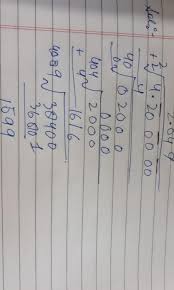 2.049
Solⁿ 2 √4.20 00 00
+2 4
40 √0 2 0 0 0
0 0 0 0
404 √2 0 0 0
+ 4 1616
4089 √38400
36801
1599